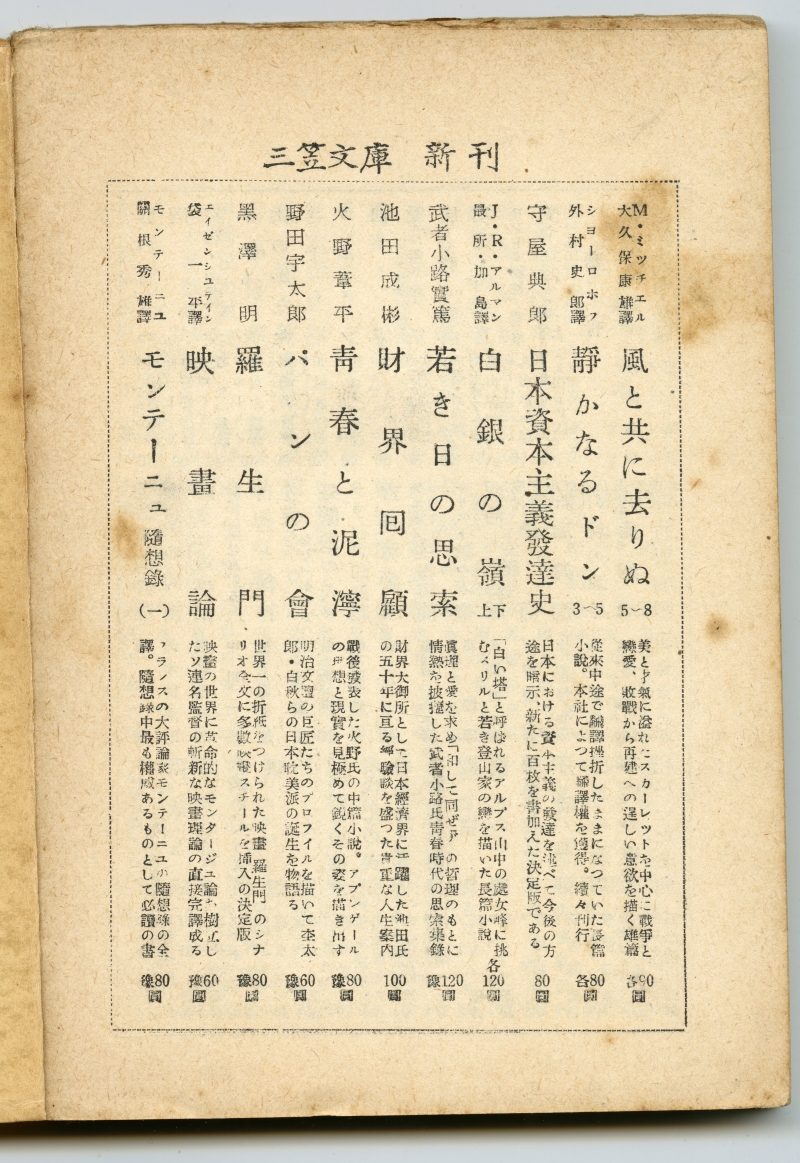 三笠文庫 新刊
M・ミツチエル
大久保康雄譯
風と共に去りぬ
5〜8
美と才氣に溢れたスカーレットを中心に戰爭と
戀愛、敗戰から再建への逞しい意欲を描く雄篇
各90圓
シヨーロホフ
外村史郎譯
靜かなるドン
3〜5
從來中途で飜譯挫折したままになつていた長篇
小說。本社によつて飜譯權を獲得。續々刊行
各80圓
守屋典郎
日本資本主義發達史
日本における資本主義の發達を述べて今後の方
途を暗示、新たに百枚を書加えた決定版である
80圓
J・R・アルマン
最所・加島譯
白銀の嶺
上下
「白い塔」と呼ばれるアルプス山中の處女峰に挑
むメリルと若き登山家の戀を描いた長篇小說
各120圓
武者小路實篤
若き日の思索
眞理と愛を求め「和して同ぜず」の哲理のもとに
情熱を披攊した武者小路氏靑春時代の思索集錄
豫120圓
池田成彬
財界回顧
財界大御所として日本經濟界に活躍した池田氏
の五十年に亘る經驗談を盛つた貴重な人生案内
100圓
火野葦平
靑春と泥濘
戰後發表した火野氏の中篇小說。アプンゲール
の思想と現實を見極めて鋭くその姿を描き出す
豫80圓
野田宇太郎
パンの會
明治文壇の巨匠たちのプロフイルを描いて杢太
郎・白秋らの日本耽美派の誕生を物語る
豫60圓
黑澤明
羅生門
世界一の折紙をつけられた映畫「羅生門」のシナ
リオ全文に多數映畫スチールを挿入の決定版
豫80圓
エイゼンシユテイン
袋一平譯
映畫論
映畫の世界に革命的なモンタージユ論を樹立し
たソ連名監督の斬新な映畫理論の直接完譯成る
豫60圓
モンテーニユ
關根秀雄譯
モンテーニュ隨想錄(一)
フランスの大評論家モンテーニユの隨想錄の全
譯。隨想錄中最も權威あるものとして必讀の書
豫80圓